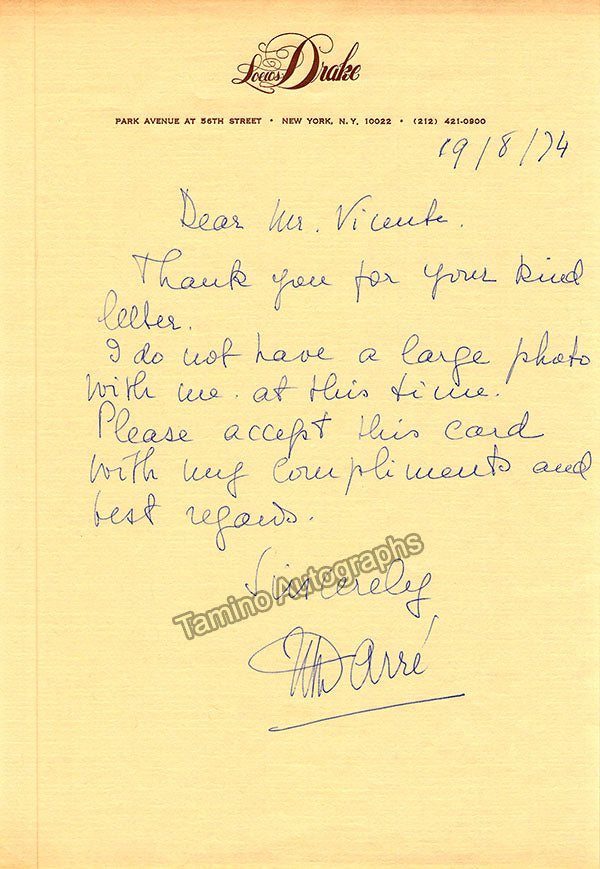 Loews Drake
PARK AVENUE AT 56TH STREET • NEW YORK, N.Y. 10022 • (212) 421-0900
19/8/74
Dear Mr. Vicente.
Thank you for your kind
letter.
I do not have a large photo
with me. at this time.
Please accept this card
with my compliments and
best regards.
Sincerely
Tamino Autographs
MDarré